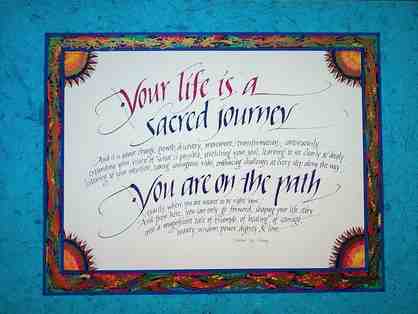 Your life is a
sacred journey
And it is about change, growth, discovery, movement, transformation, continuously
expanding your vision of what is possible, stretching your soul, learning to see clearly & deeply
listening to your intuition, taking courageous risks, embracing challenges at every step along the way
You are on the path
exactly where you are meant to be right now
And from here, you can only go forward, shaping your life story
into a magnificent tale of triumph, of healing, of courage,
beauty, wisdom, power, dignity & love.